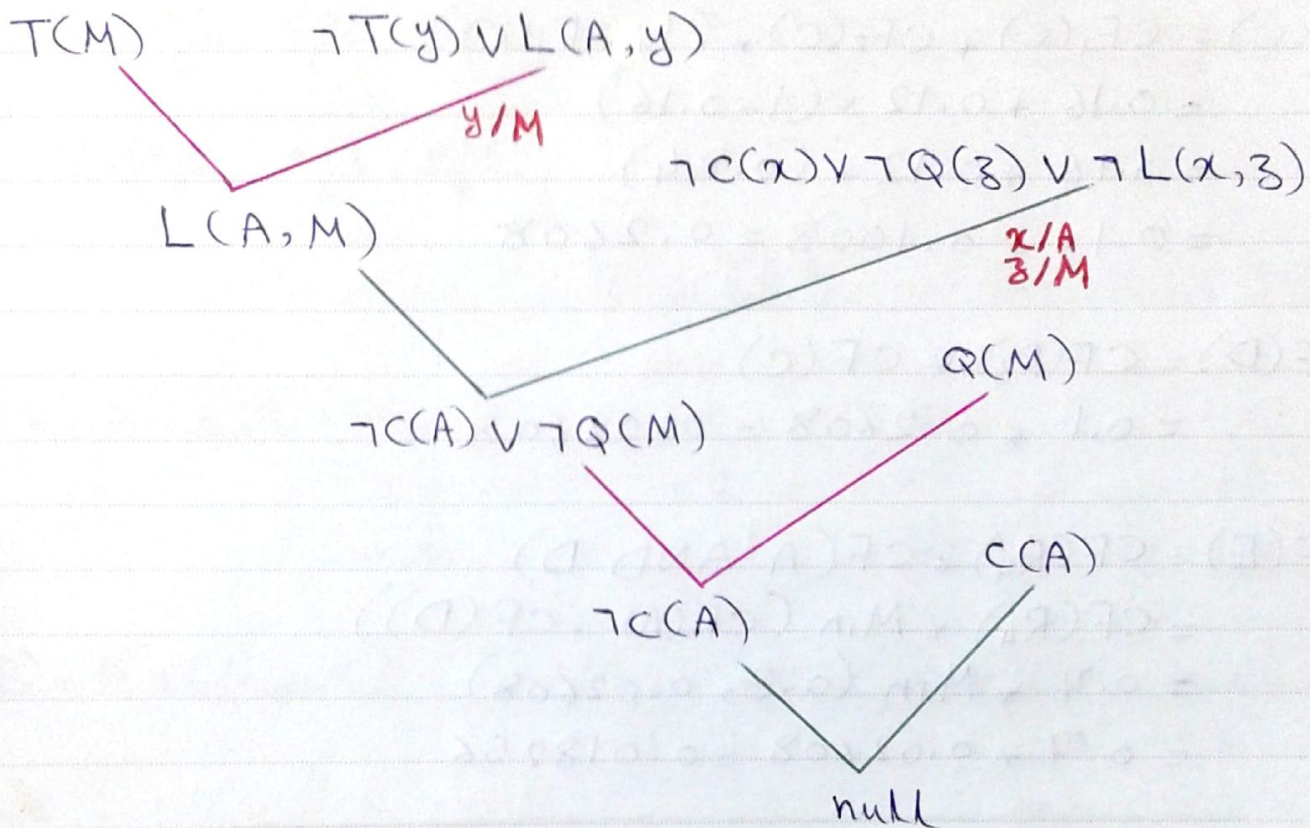 T(M) ¬T(y) ∨ L(A, y)
y/M
¬C(x) ∨ ¬Q(z) ∨ ¬L(x, z)
L(A, M)
x/A
z/M
Q(M)
¬C(A) ∨ ¬Q(M)
C(A)
¬C(A)
null